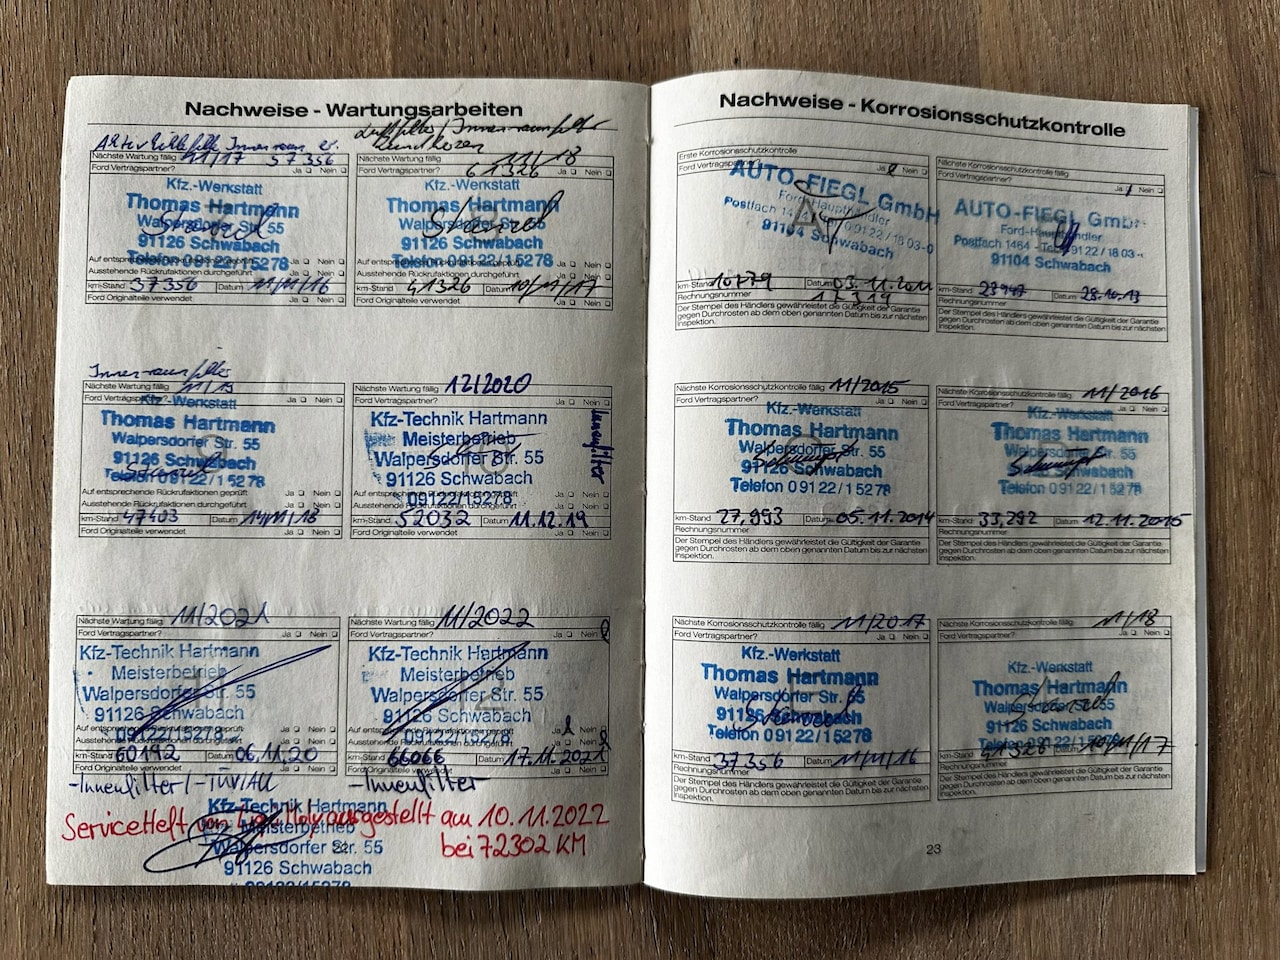 Nachweise - Wartungsarbeiten
Luftfilter/Innenraumfilter
Nächste Wartung fällig 11/17 57356
Ford Vertragspartner? Ja Nein
Kfz.-Werkstatt
Thomas Hartmann
Walpersdorfer Str. 55
91126 Schwabach
Telefon 09122/15278
Auf entsprechende Rückrufaktionen geprüft Ja Nein
Ausstehende Rückrufaktionen durchgeführt Ja Nein
km-Stand 37356 Datum 11/11/16
Ford Originalteile verwendet Ja Nein
Nächste Wartung fällig 11/18
61326
Ford Vertragspartner? Ja Nein
Kfz.-Werkstatt
Thomas Hartmann
Walpersdorfer Str. 55
91126 Schwabach
Telefon 09122/15278
Auf entsprechende Rückrufaktionen geprüft Ja Nein
Ausstehende Rückrufaktionen durchgeführt Ja Nein
km-Stand 41326 Datum 10/11/17
Ford Originalteile verwendet Ja Nein
Innenraumfilter
Nächste Wartung fällig 11/19
Ford Vertragspartner? Ja Nein
Kfz.-Werkstatt
Thomas Hartmann
Walpersdorfer Str. 55
91126 Schwabach
Telefon 09122/15278
Auf entsprechende Rückrufaktionen geprüft Ja Nein
Ausstehende Rückrufaktionen durchgeführt Ja Nein
km-Stand 47403 Datum 14/11/18
Ford Originalteile verwendet Ja Nein
Nächste Wartung fällig 12/2020
Ford Vertragspartner? Ja Nein
Kfz-Technik Hartmann
Meisterbetrieb
Walpersdorfer Str. 55
91126 Schwabach
09122/15278
Innenfilter
Auf entsprechende Rückrufaktionen geprüft Ja Nein
Ausstehende Rückrufaktionen durchgeführt Ja Nein
km-Stand 52032 Datum 11.12.19
Ford Originalteile verwendet Ja Nein
Nächste Wartung fällig 11/2021
Ford Vertragspartner? Ja Nein
Kfz-Technik Hartmann
Meisterbetrieb
Walpersdorfer Str. 55
91126 Schwabach
09122/15278
Auf entsprechende Rückrufaktionen geprüft Ja Nein
Ausstehende Rückrufaktionen durchgeführt Ja Nein
km-Stand 60192 Datum 06.11.20
Ford Originalteile verwendet Ja Nein
-Innenfilter/-TÜV/AU
Nächste Wartung fällig 11/2022
Ford Vertragspartner? Ja Nein
Kfz-Technik Hartmann
Meisterbetrieb
Walpersdorfer Str. 55
91126 Schwabach
09122/15278
Auf entsprechende Rückrufaktionen geprüft Ja Nein
Ausstehende Rückrufaktionen durchgeführt Ja Nein
km-Stand 66066 Datum 17.11.2021
Ford Originalteile verwendet Ja Nein
-Innenfilter
Kfz-Technik Hartmann
Serviceheft von ausgestellt am 10.11.2022
Meisterbetrieb
bei 72302 KM
Walpersdorfer Str. 55
91126 Schwabach
09122/15278
22
Nachweise - Korrosionsschutzkontrolle
Erste Korrosionsschutzkontrolle
Ford Vertragspartner? Ja Nein
AUTO-FIEGL GmbH
Ford-Haupthändler
91104 Schwabach
km-Stand 10779 Datum 03.11.2011
Rechnungsnummer 17319
Der Stempel des Händlers gewährleistet die Gültigkeit der Garantie
gegen Durchrosten ab dem oben genannten Datum bis zur nächsten
Inspektion.
Nächste Korrosionsschutzkontrolle fällig
Ford Vertragspartner? Ja Nein
AUTO-FIEGL GmbH
Ford-Haupthändler
Postfach 1464
91104 Schwabach
km-Stand 23947 Datum 28.10.13
Rechnungsnummer
Der Stempel des Händlers gewährleistet die Gültigkeit der Garantie
gegen Durchrosten ab dem oben genannten Datum bis zur nächsten
Inspektion.
Nächste Korrosionsschutzkontrolle fällig 11/2015
Ford Vertragspartner? Ja Nein
Kfz.-Werkstatt
Thomas Hartmann
Walpersdorfer Str. 55
91126 Schwabach
Telefon 09122/15278
km-Stand 27,993 Datum 05.11.2014
Rechnungsnummer
Der Stempel des Händlers gewährleistet die Gültigkeit der Garantie
gegen Durchrosten ab dem oben genannten Datum bis zur nächsten
Inspektion.
Nächste Korrosionsschutzkontrolle fällig 11/2016
Ford Vertragspartner? Ja Nein
Kfz.-Werkstatt
Thomas Hartmann
Walpersdorfer Str. 55
91126 Schwabach
Telefon 09122/15278
km-Stand 33,292 Datum 12.11.2015
Rechnungsnummer
Der Stempel des Händlers gewährleistet die Gültigkeit der Garantie
gegen Durchrosten ab dem oben genannten Datum bis zur nächsten
Inspektion.
Nächste Korrosionsschutzkontrolle fällig 11/2017
Ford Vertragspartner? Ja Nein
Kfz.-Werkstatt
Thomas Hartmann
Walpersdorfer Str. 55
91126 Schwabach
Telefon 09122/15278
km-Stand 37356 Datum 11/11/16
Rechnungsnummer
Der Stempel des Händlers gewährleistet die Gültigkeit der Garantie
gegen Durchrosten ab dem oben genannten Datum bis zur nächsten
Inspektion.
Nächste Korrosionsschutzkontrolle fällig 11/18
Ford Vertragspartner? Ja Nein
Kfz.-Werkstatt
Thomas Hartmann
Walpersdorfer Str. 55
91126 Schwabach
Telefon 09122/15278
km-Stand 41326 Datum 10/11/17
Rechnungsnummer
Der Stempel des Händlers gewährleistet die Gültigkeit der Garantie
gegen Durchrosten ab dem oben genannten Datum bis zur nächsten
Inspektion.
23